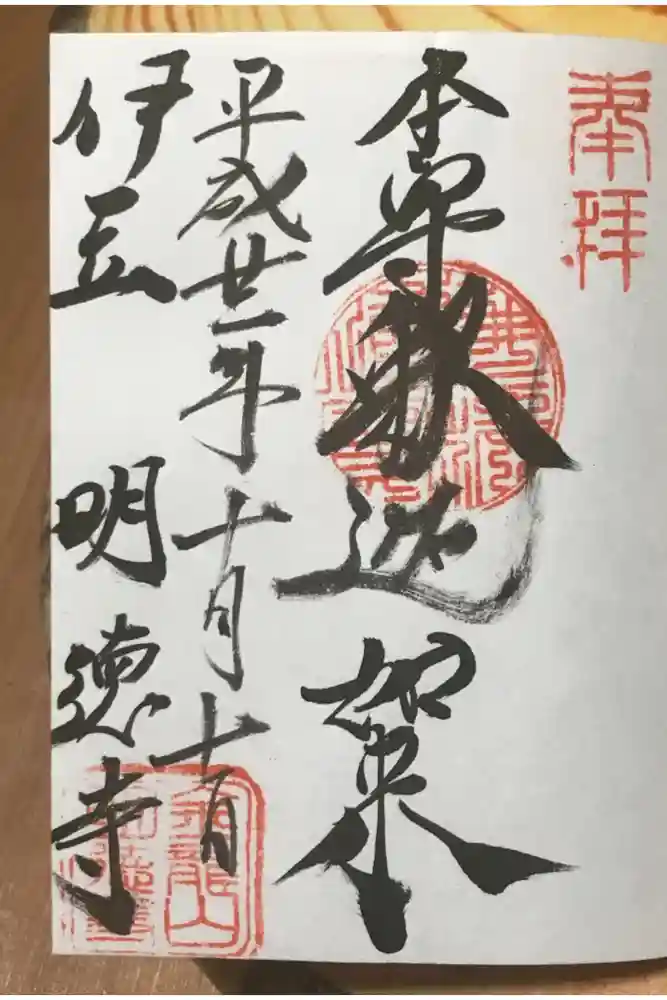 奉拝
本尊釈迦如来
平成廿一年十月十一日
伊豆 明徳寺